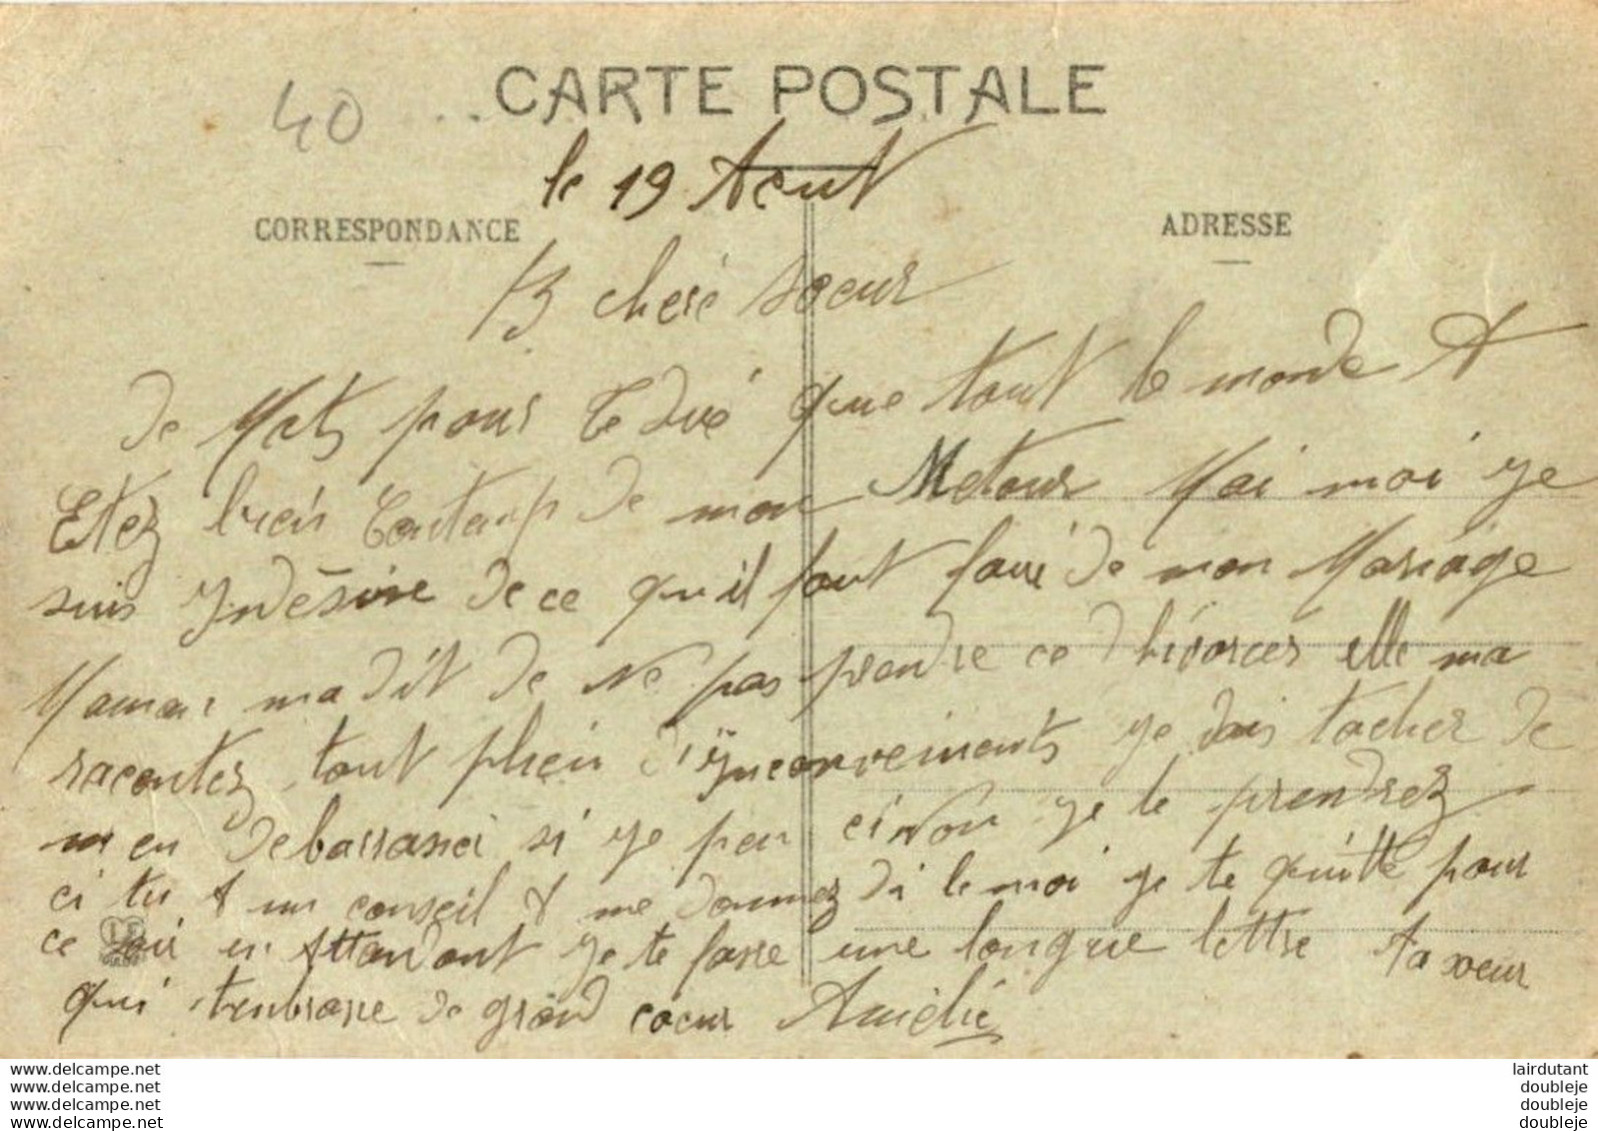 40
CARTE POSTALE
le 19 Aout
CORRESPONDANCE
ADRESSE
B cheré soeur
De Mots pour te diré que tout le monde A
Etez bien Contemp de mon Metour Mai moi ye
suis Yndésire de ce qu'il fout fairé de mon Mariage
Maman ma dit de Ne pas prendre ce Dhivorcer elle ma
raconter tout plein d'ynconvenients ye dois tacher de
m en debarrasser si ye peu ci Non ye le prendrez
ci tu A un conseil A me donnez di le moi ye te quitte pour
ce soir en Attandant ye te fasse une longue lettre ta soeur
qui t'embrasse de grand coeur Amélie
www.delcampe.net
www.delcampe.net
www.delcampe.net
www.delcampe.net
lairdutant
doubleje
doubleje
doubleje